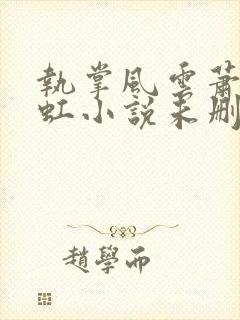 執掌風雲蕭
虹小說未刪
趙學而